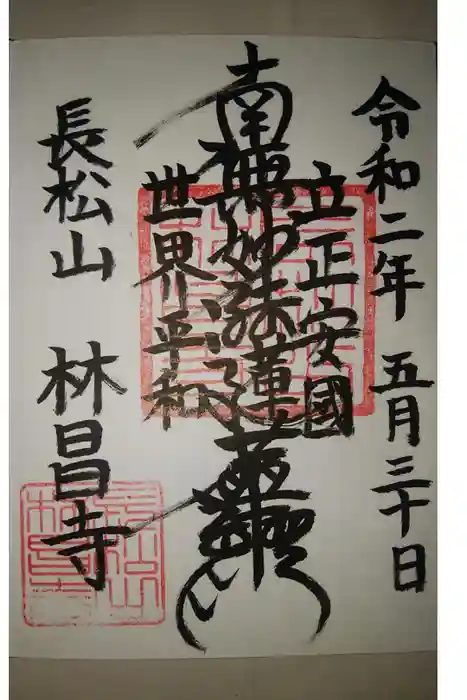 令和二年 五月三十日
立正安國
南無妙法蓮華經
世界平和
長松山 林昌寺